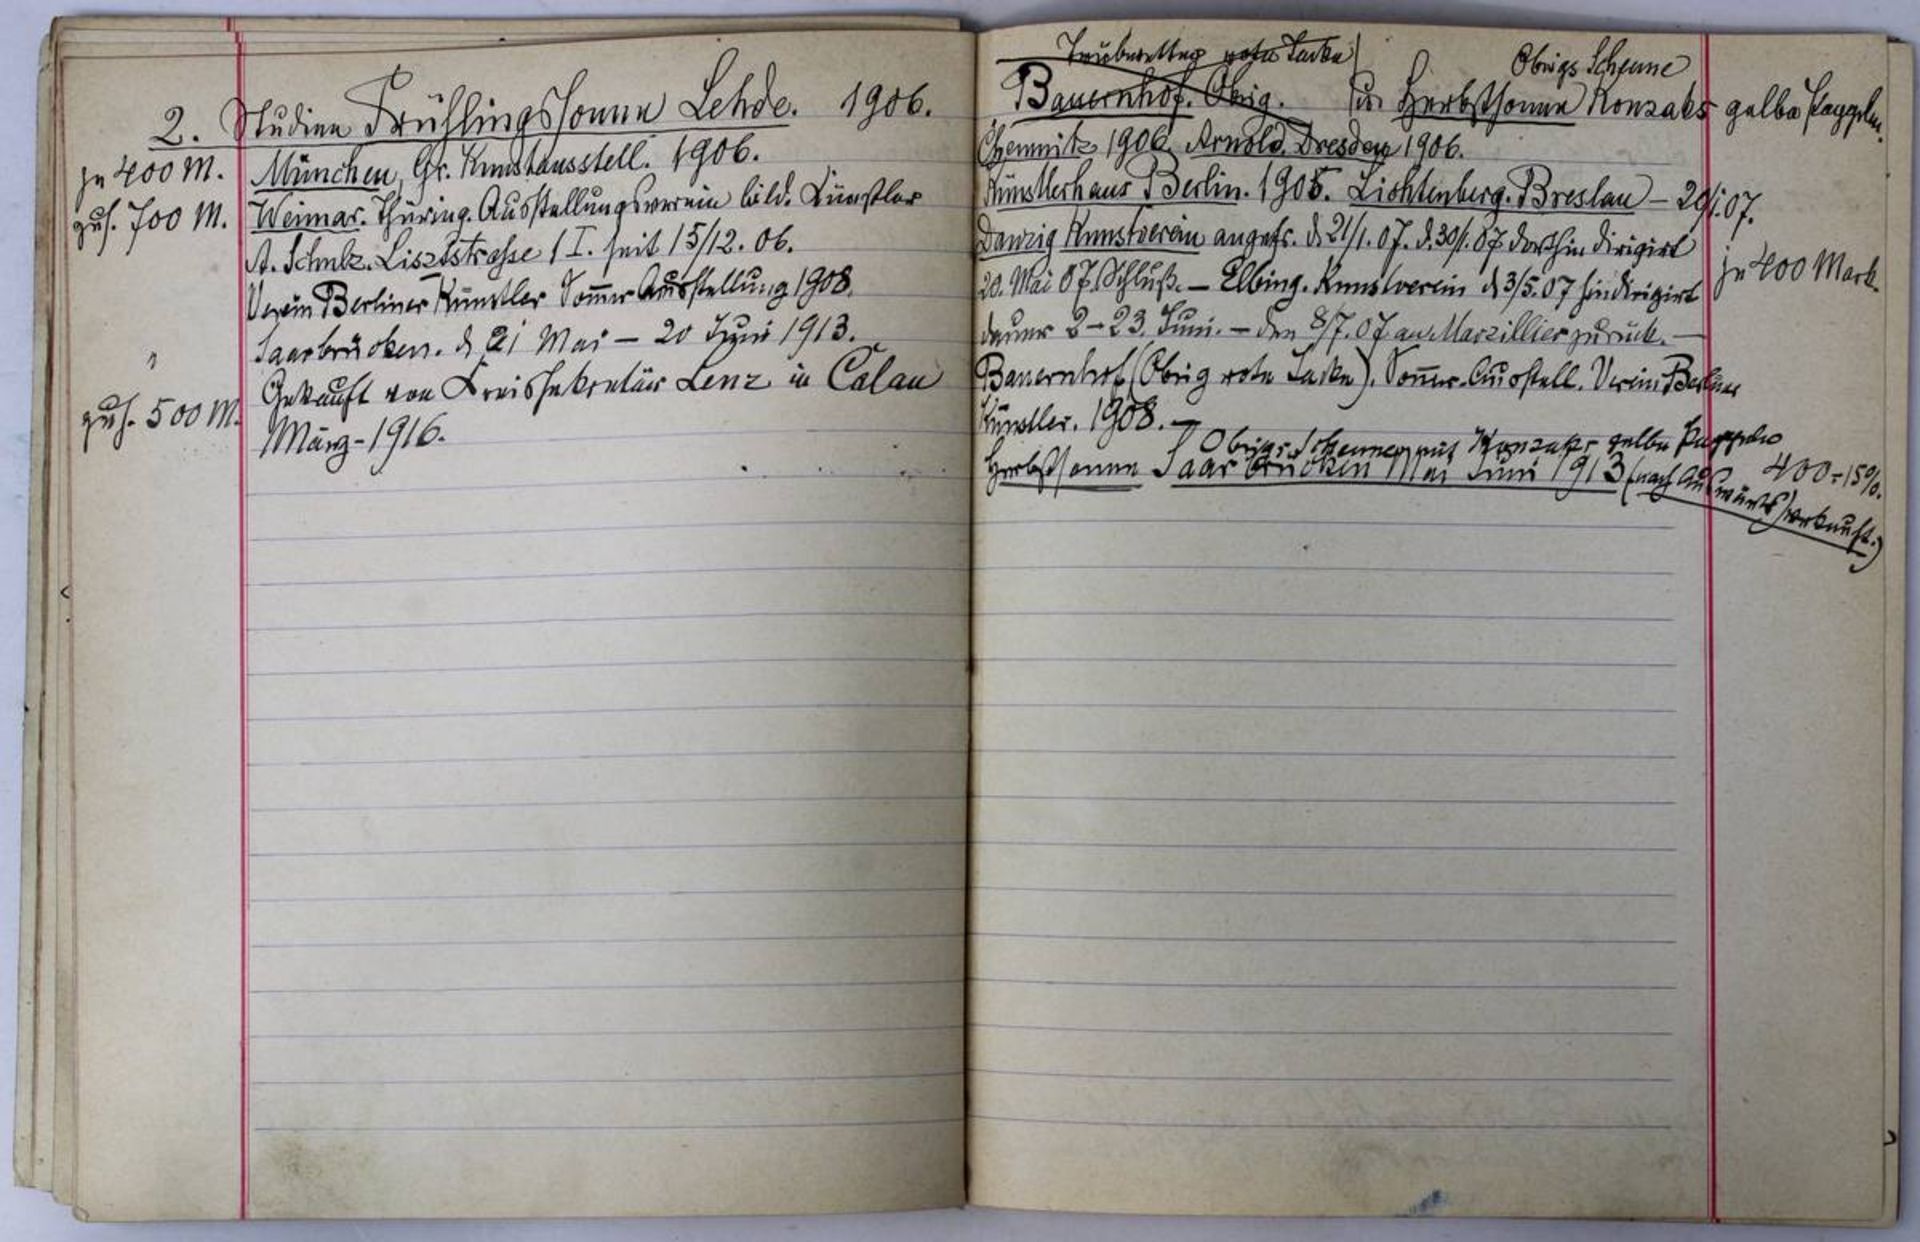 2. Studien Frühlingssonne Lehde. 1906.
je 400 M. München, Gr. Kunstausstell. 1906.
zus. 700 M. Weimar. Thüring. Ausstellungsverein bild. Künstler
A. Schulz. Lisztstrasse 1 I. seit 15/12. 06.
Verein Berliner Künstler Sommer Ausstellung 1908.
Saarbrücken. d. 21 Mai – 20 Juni 1913.
"
Gekauft von Kreissekretär Lenz in Calau
zus. 500 M.
März – 1916.
rote Jacke
Obrigs Scheune
Bauernhof. Obrig. Herbstsonne Konzaks gelbe Pappeln.
Chemnitz 1906. Arnold. Dresden 1906.
Künstlerhaus Berlin. 1906. Lichtenberg. Breslau – 20/1.07.
Danzig Kunstverein angefr. d. 21/1. 07. d. 30/1. 07 dorthin dirigirt
je 400 Mark.
20. Mai 07. Schluß. – Elbing. Kunstverein d. 3/5. 07 hindirigirt
dauer 2–23. Juni. – den 8/7. 07 an Marzillier zurück. –
Bauernhof (Obrig rote Jacke). Sommer-Ausstell. Verein Berliner
Künstler. 1908. –
Obrigs Scheune mit Konzaks gelbe Pappeln
Herbstsonne Saarbrücken Mai Juni 1913 (nach Auswärts verkauft.)
400 – 15%.